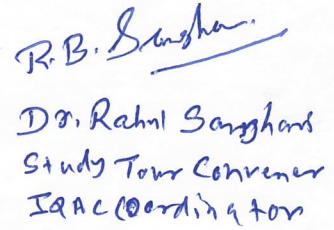 R.B. Sangha
Dr. Rahul Sangghavi
Study Tour Convener
IQAC Coordinator